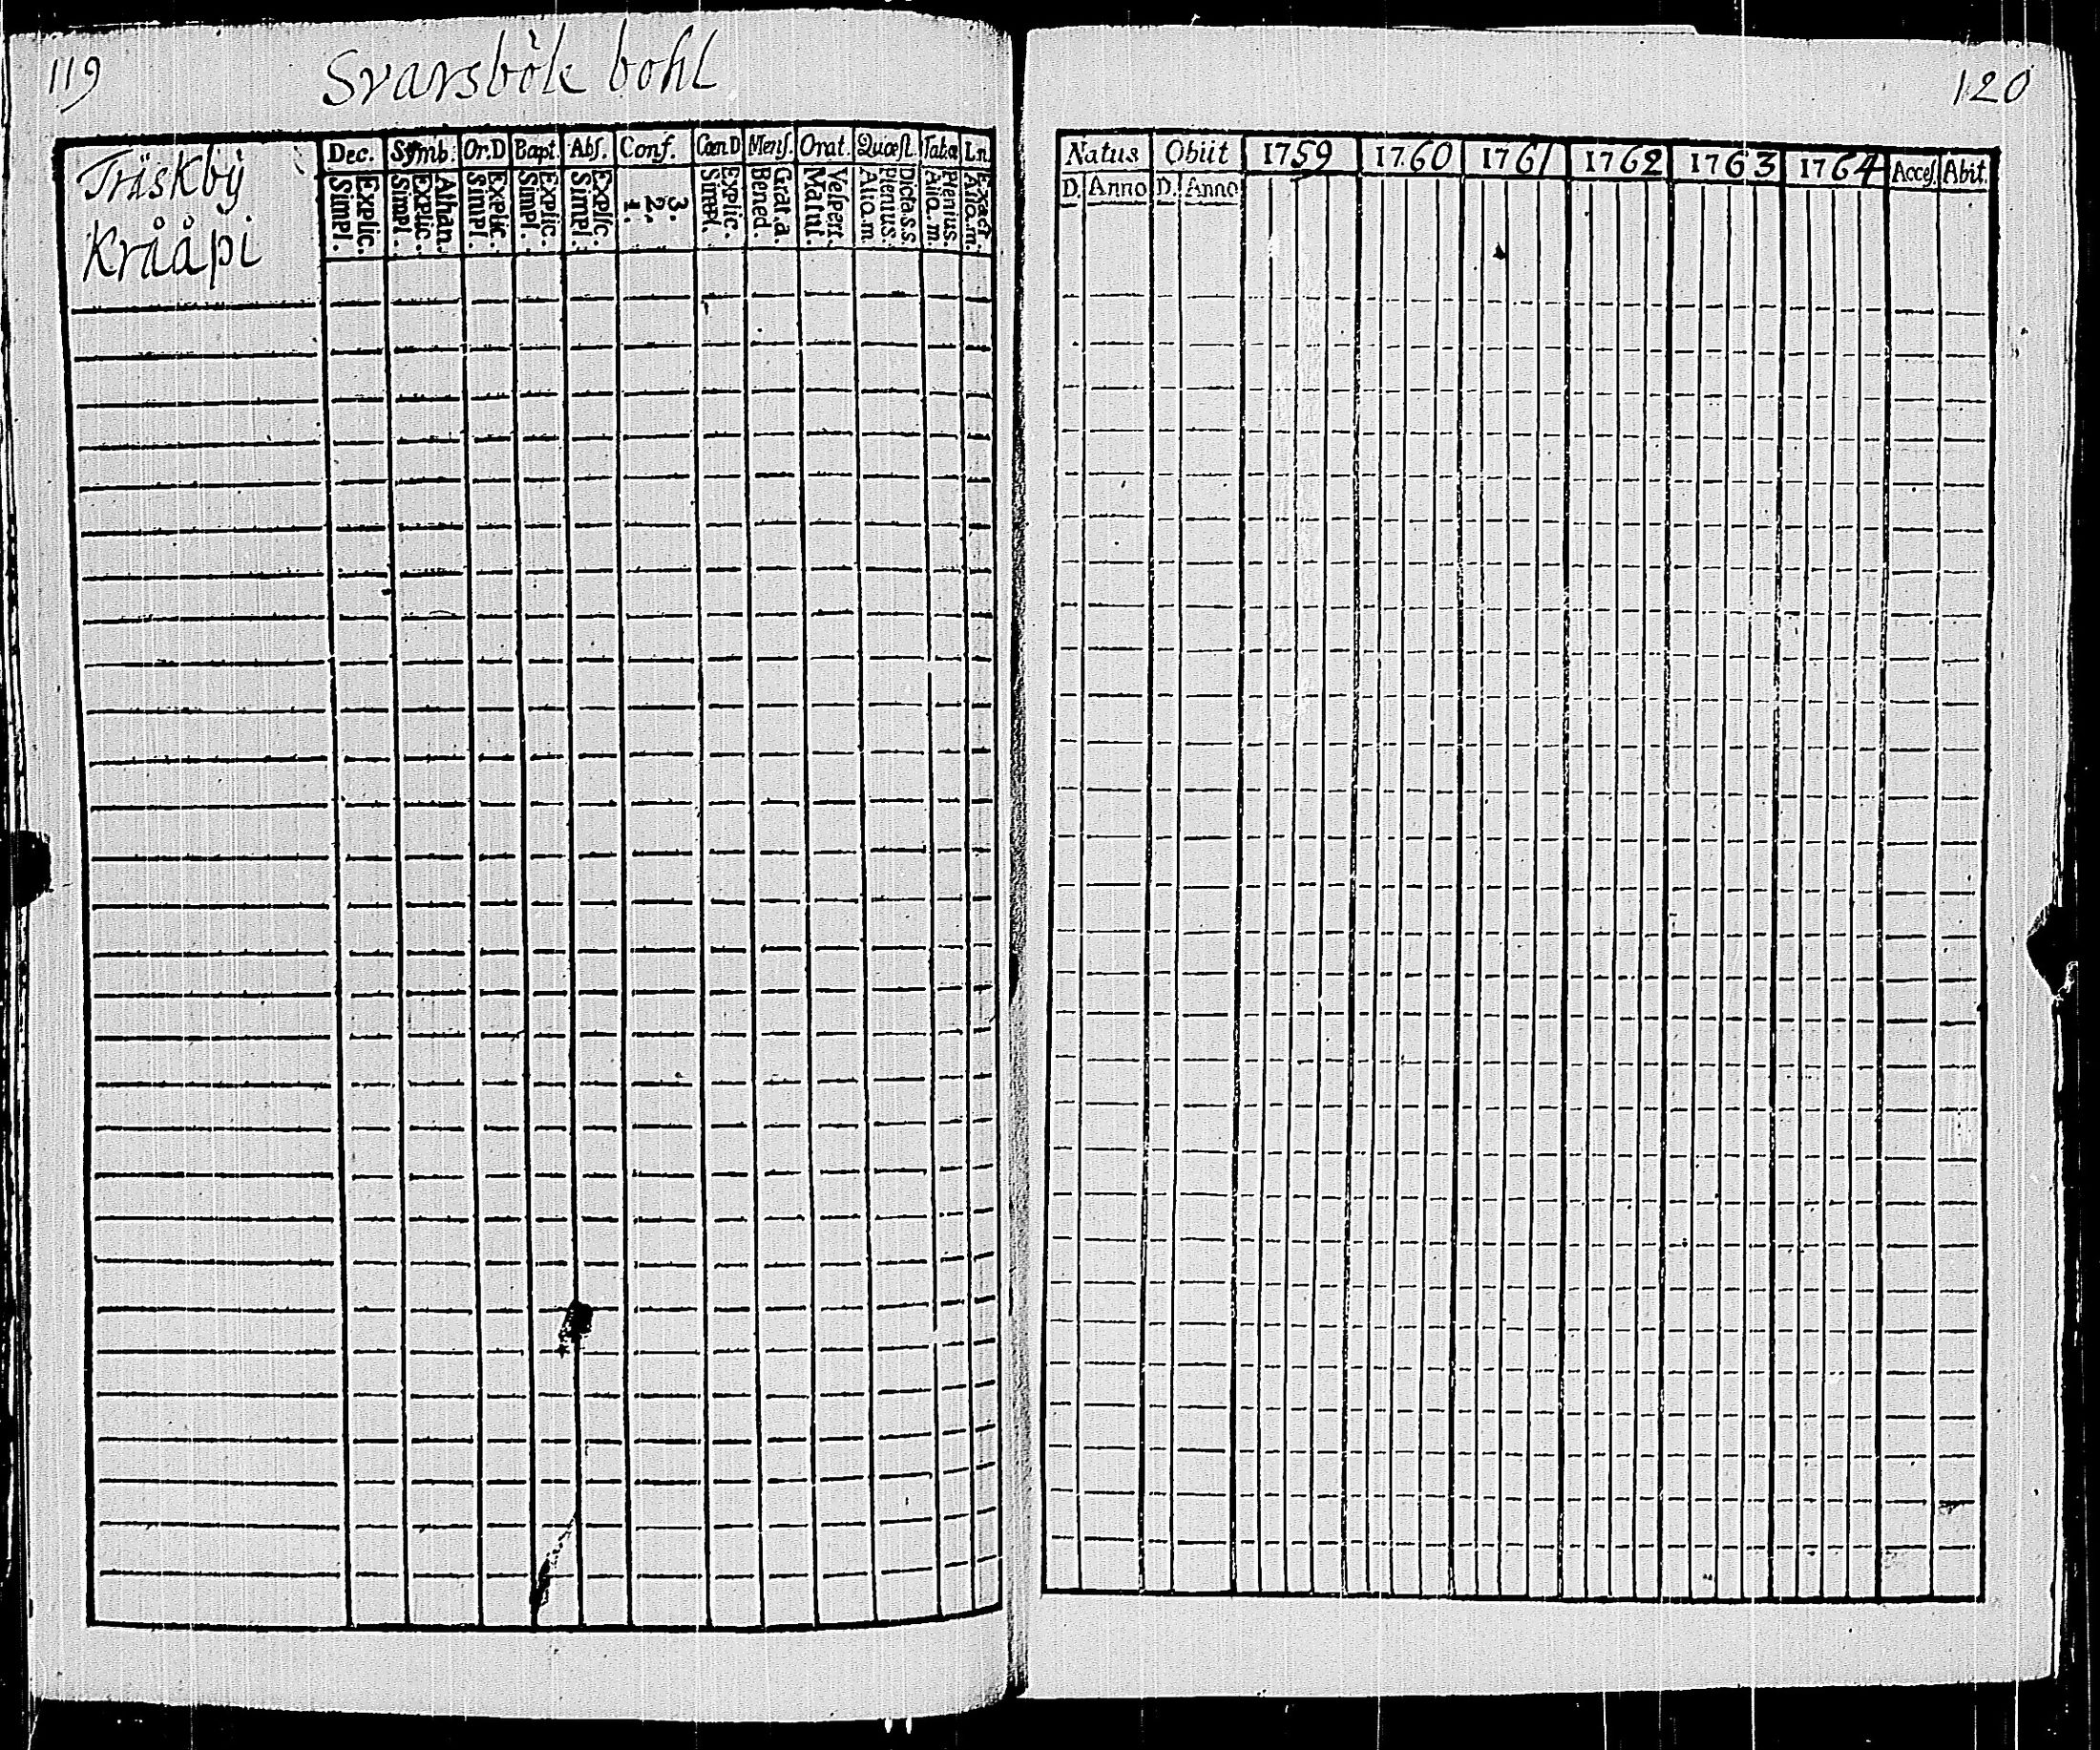 119
Svarsbök bohl
Träskbÿ
Krååpi
Dec. Symb. Or.D Bapt. Abſ. Conf. Cœn.D Menſ. Orat. Quæſt. Taba. In.
Simpl. Explic. Simpl. Explic. Athan. Simpl. Explic. Simpl. Explic. Simpl. Explic. 1. 2. 3. Simpl. Explic. Bened. Grat. a. Matut. Veſpert. Alia. m. Plenius. Dicta. s.s. Alia. m. Plenius. Alia. m. Exact.
120
Natus Obiit 1759 1760 1761 1762 1763 1764 Acceſ. Abit.
D. Anno D. Anno